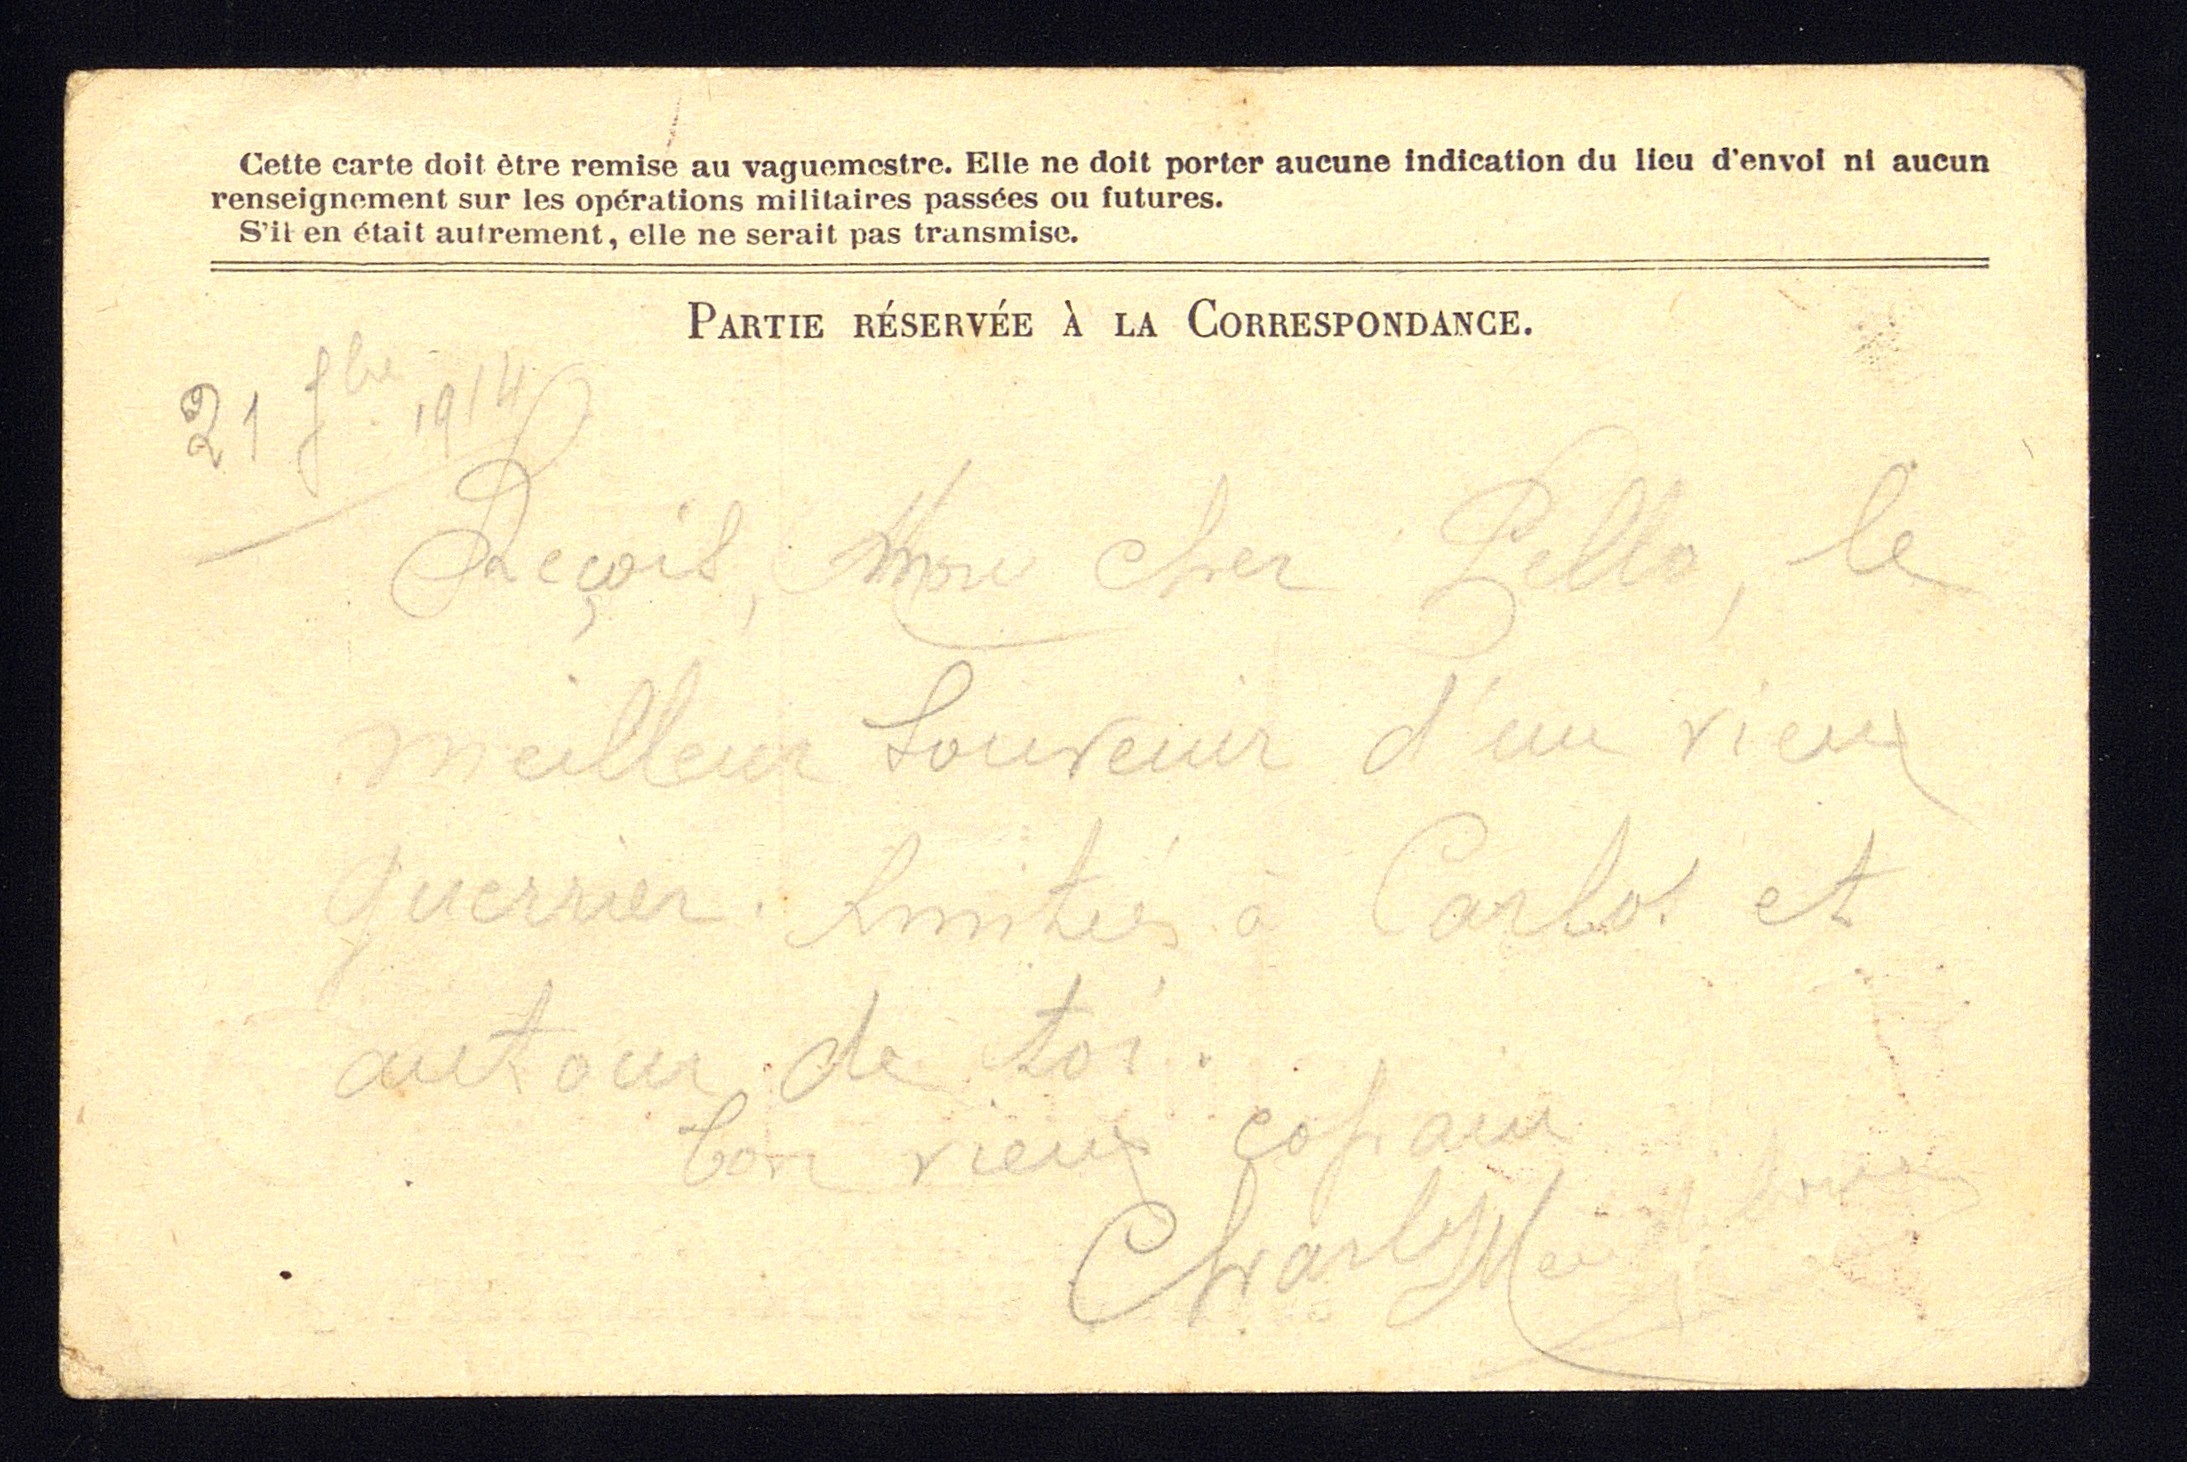 Cette carte doit être remise au vaguemestre. Elle ne doit porter aucune indication du lieu d'envoi ni aucun
renseignement sur les opérations militaires passées ou futures.
S'il en était autrement, elle ne serait pas transmise.
PARTIE RÉSERVÉE À LA CORRESPONDANCE.
21 bre 1914
Reçois, Mon cher Pello, le
meilleur Souvenir d'un vieux
guerrier. Amitiés à Carlos et
autour de toi.
Ton vieux copain
Charly